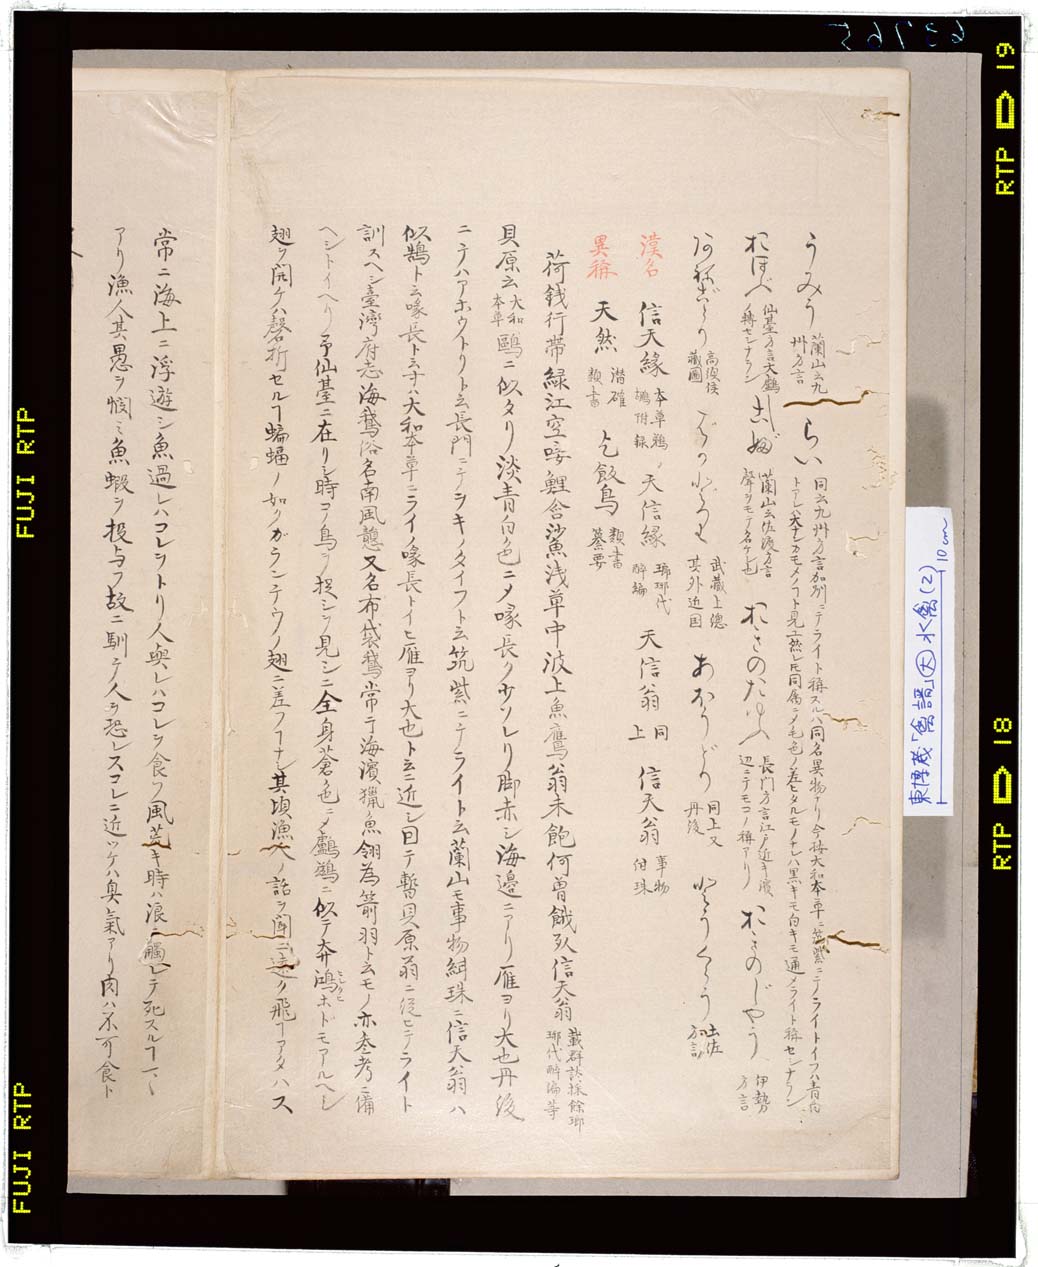 うみう 蘭山云九州方言 らい 同云九州方言加別ニテライト称スルハ同名異物ナリ今按大和本草ニ筑紫ニテノライトイフハ青白
トアレハ大ナルカモメノコト見エ然レ𪜈同属ニメ毛色ノ差ヒタルモノナレハ黒キモ白キモ通メライト称セシナラン
おほべ 仙臺方言大鶴ノ轉セシナラン 蘭山云佐渡方言聲ヲモテ名ケシ也 おきのたゆふ 長門方言江戸近キ濱辺ニテモコノ称アリ おきのじやう 伊勢方言
高須侯藏圖 ばかどり 武蔵上總其外近国 あほうどり 同上又丹後 とうくろう 土佐方言
漢名 信天緣 本草鵜鶘附録 天信緣 瑯琊代醉編 天信翁 同上 信天翁 事物紺珠
異稱 天然 潜確類書 乞飯鳥 類書纂要
荷銭行帯緑江空唼鯉含鯊浅草中波上魚鷹翁未飽何曽餓死信天翁 載群談採餘瑯琊代醉編等
貝原云 大和本草 鷗ニ似タリ淡青白色ニメ喙長ク少ソレリ脚赤シ海邉ニアリ雁ヨリ大也丹後
ニテハアホウトリト云長門ニテヲキノタイフト云筑紫ニテライト云蘭山モ事物紺珠ニ信天翁ハ
似鵠ト云喙長ト云寸ハ大和本草ニライノ喙長トイヒ雁ヨリ大也ト云ニ近シ因テ暫貝原翁ニ従ヒテライト
訓スヘシ臺灣府志海鵞俗名南風戇又名布袋鵞常于海濱獵魚翎為箭羽ト云モノ亦参考ニ備
ヘシトイヘリ予仙基ニ在リシ時コノ鳥ヲ捉シヲ見シニ全身蒼色ニメ鸕鷀ニ似テ奔鴻ホドモアルヘシ
翅ヲ開ケハ磬折セルヿ蝙蝠ノ如クガランテウノ翅ニ差フヿナシ其頃漁人ノ話ヲ聞ニ遠ク飛フヿアタハス
常ニ海上ニ浮遊シ魚過レハコレヲトリ人與レハコレヲ食フ風荒キ時ハ浪ニ觸レテ死スルヿマヽ
アリ漁人其愚ヲ憫ミ魚蝦ヲ投与フ故ニ馴テ人ヲ恐レスコレニ近ツケハ臭氣アリ肉ハ不可食ト
東博蔵「禽譜」大 水禽(2)
10cm
63765
RTP 19
RTP 18
FUJI RTP
FUJI RTP